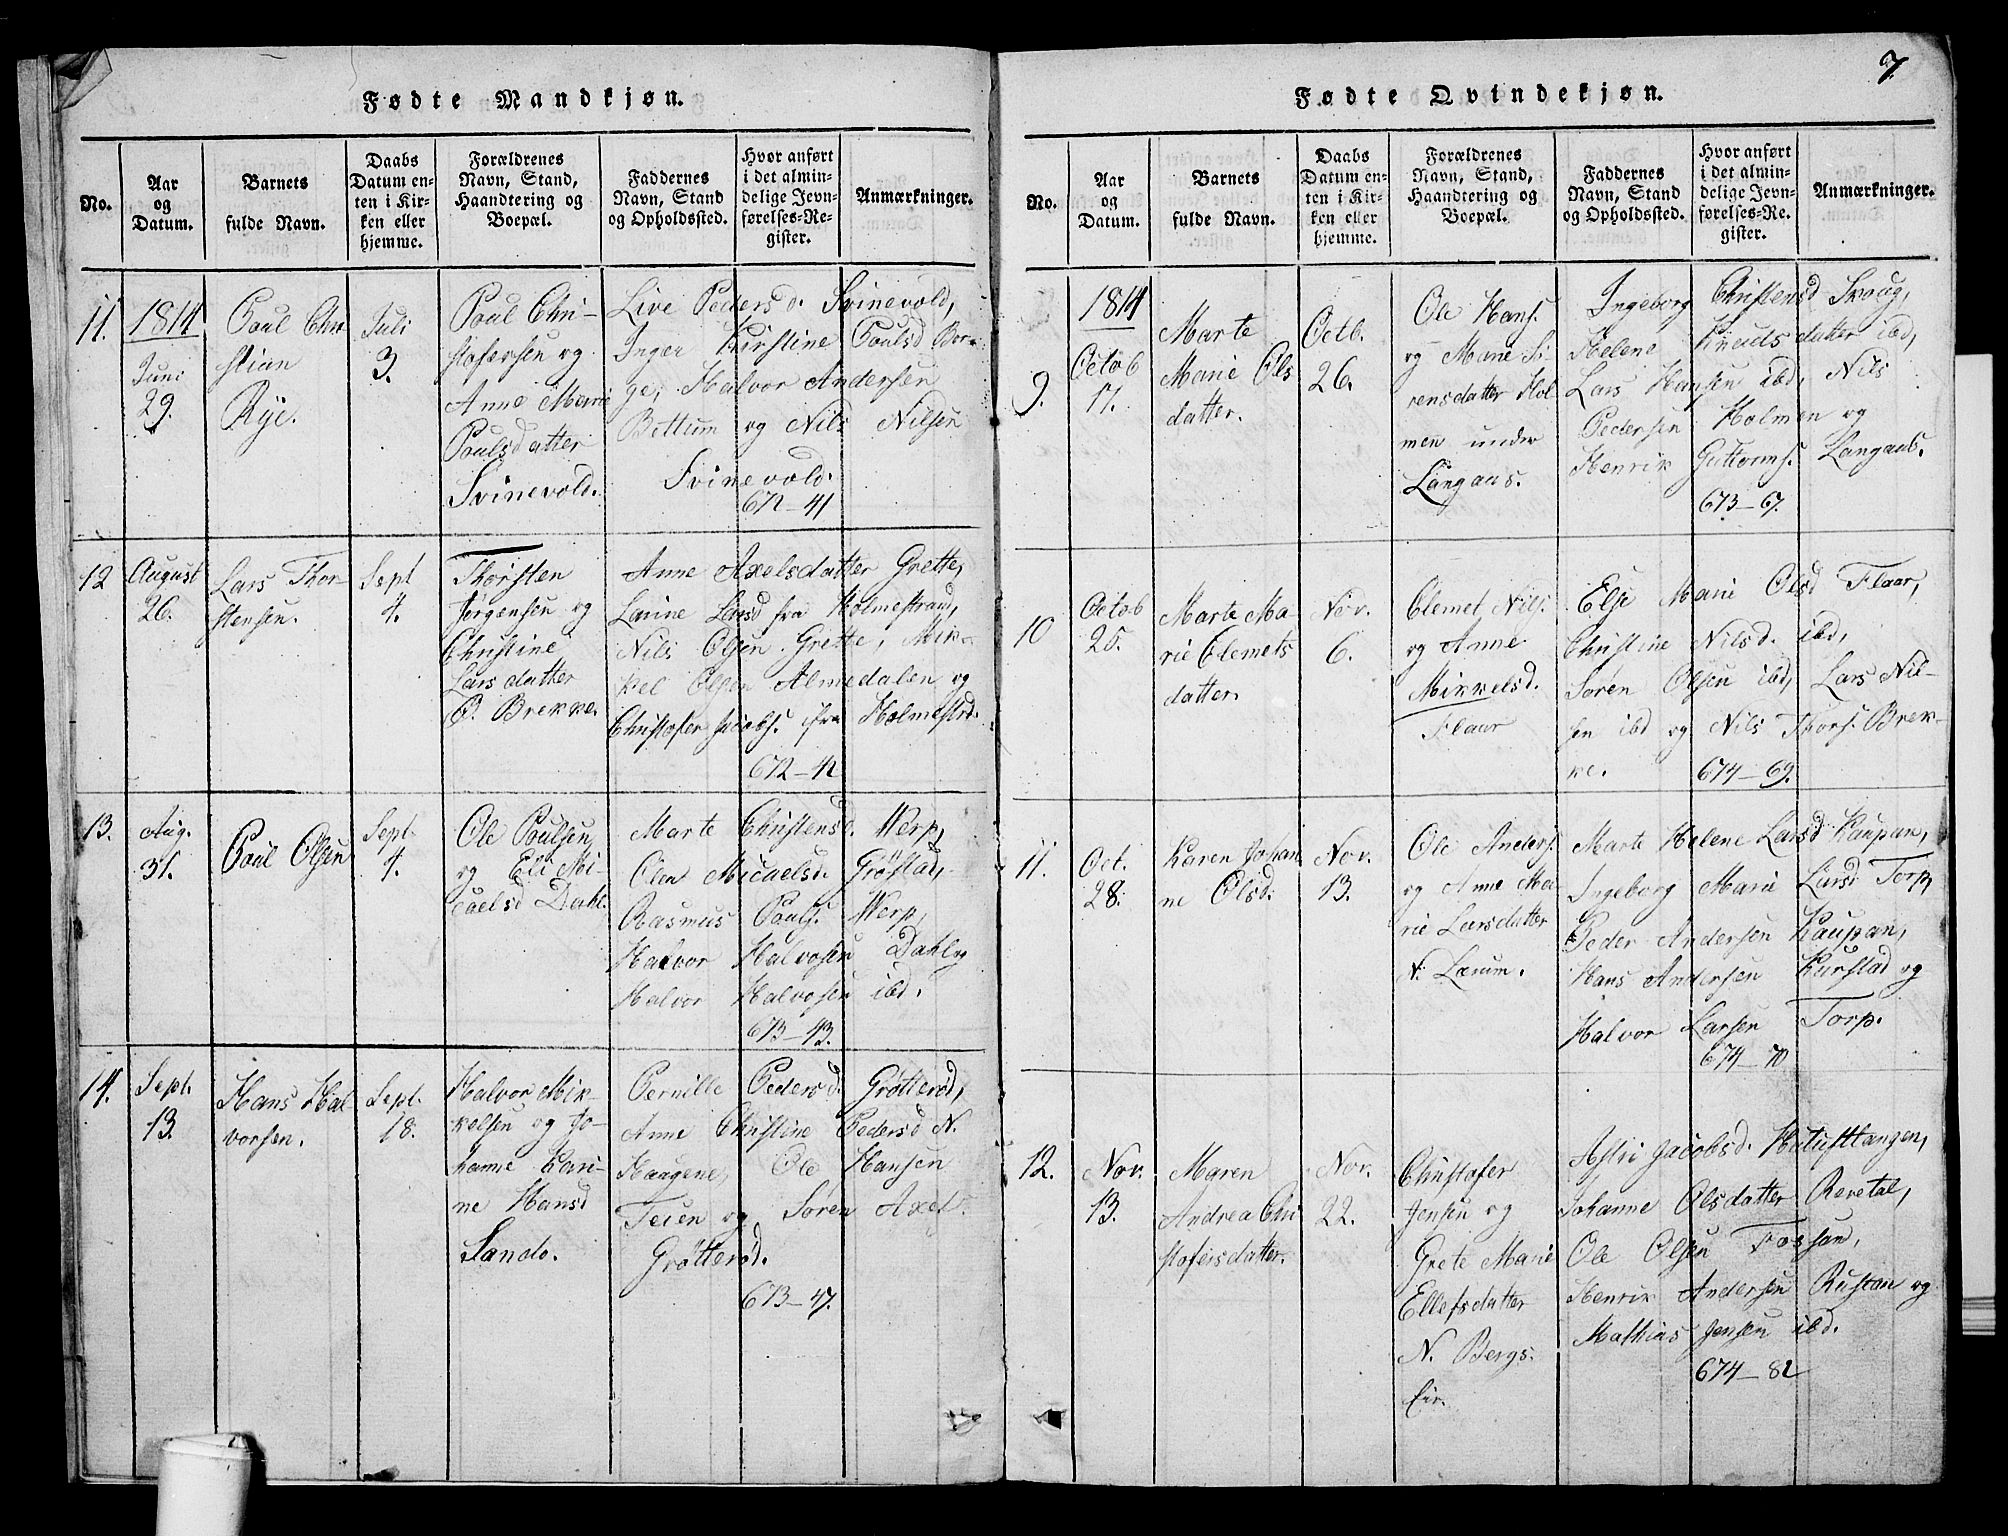 Fødte Mandkjøn.
No.
Aar
og
Datum.
Barnets
fulde Navn.
Daabs
Datum en-
ten i Kir-
ken eller
hjemme.
Forældrenes
Navn, Stand,
Haandtering og
Boepæl.
Faddernes
Navn, Stand
og Opholdssted.
Hvor anført
i det almin-
delige Jevn-
førelses-Re-
gister.
Anmærkninger.
11.
1814
Juni
29.
Poul Chri
stian
Rye.
Juli
3.
Poul Chri-
stofersen og
Anne Marie
Poulsdatter
Svinevold.
Live Pedersd. Svinevold,
Inger Kirstine Poulsd Bor-
ge, Halvor Andersen
Bettum og Nils Nilsen
Svinevold.
672-41
12
August
26.
Lars Thor-
stensen.
Sept
4.
Thorsten
Jørgensen og
Christine
Larsdatter
Ø. Brekke.
Anne Axelsdatter Grette,
Larine Larsd fra Holmestrand,
Nils Olsen Grette, Mik-
kel Olsen Almedalen og
Christofer Jacobs. fra Holmestrd.
672-42
13.
Aug.
31.
Poul Olsen
Sept.
4.
Ole Poulsen
og Eli Mi-
caelsd Dahl.
Marte Christensd. Werp,
Olea Micaelsd. Grøstad,
Rasmus Pouls. Werp,
Halvor Halvosen Dahl og
Halvor Halvosen ibd.
673-43.
14.
Sept.
13.
Hans Hal
vorsen.
Sept.
18.
Halvor Mik-
kelsen og Jo-
hanne Kari-
ne Hansd
Sando.
Pernille Pedersd. Grøtterød,
Anne Christine Pedersd N.
Haugene, Ole Hansen
Teien og Søren Axels.
Grøtterød.
673-47.
7.
Fødte Qvindekjøn.
No.
Aar
og
Datum.
Barnets
fulde Navn.
Daabs
Datum en-
ten i Kir-
ken eller
hjemme.
Forældrenes
Navn, Stand,
Haandtering og
Boepæl.
Faddernes
Navn, Stand
og Opholdssted.
Hvor anført
i det almin-
delige Jevn-
førelses-Re-
gister.
Anmærkninger.
9.
1814
Octob
17.
Marte
Marie Ols
datter.
Octb.
26.
Ole Hans.
og Marie Si-
rensdatter Hol
men under
Langaus.
Ingeborg Christensd Skoug,
Helene Knudsdatter ibd,
Lars Hansen ibd, Nils
Pedersen Holmen og
Henrik Guttorms. Langaus.
673-67.
10
Octob
25.
Marte Ma-
rie Clemets
datter.
Nov.
6.
Clemet Nils.
og Anne
Mikkelsd.
Flaar
Else Marie Olsd Flaar,
Christine Nilsd. ibd,
Søren Olsen ibd, Lars Nil-
sen ibd og Nils Thors. Brek-
ke.
674-69.
11.
Oct.
28.
Karen Johan
ne Olsd.
Nov.
13.
Ole Anders.
og Anne Ma-
rie Larsdatter
N. Lærum.
Marte Helene Larsd Kaupan,
Ingeborg Marie Larsd Torp,
Peder Andersen Kaupan,
Hans Andersen Kurstad og
Halvor Larsen Torp.
674-70
12.
Nov.
13.
Maren
Andrea Chri
stofersdatter.
Nov.
22.
Christofer
Jensen og
Grete Marie
Ellefsdatter
N. Bergs-
Eie.
Astri Jacobsd.
Johanne Olsdatter Revetal,
Ole Olsen Fossan,
Henrik Andersen Rustan og
Mathias Jensen ibd.
674-82